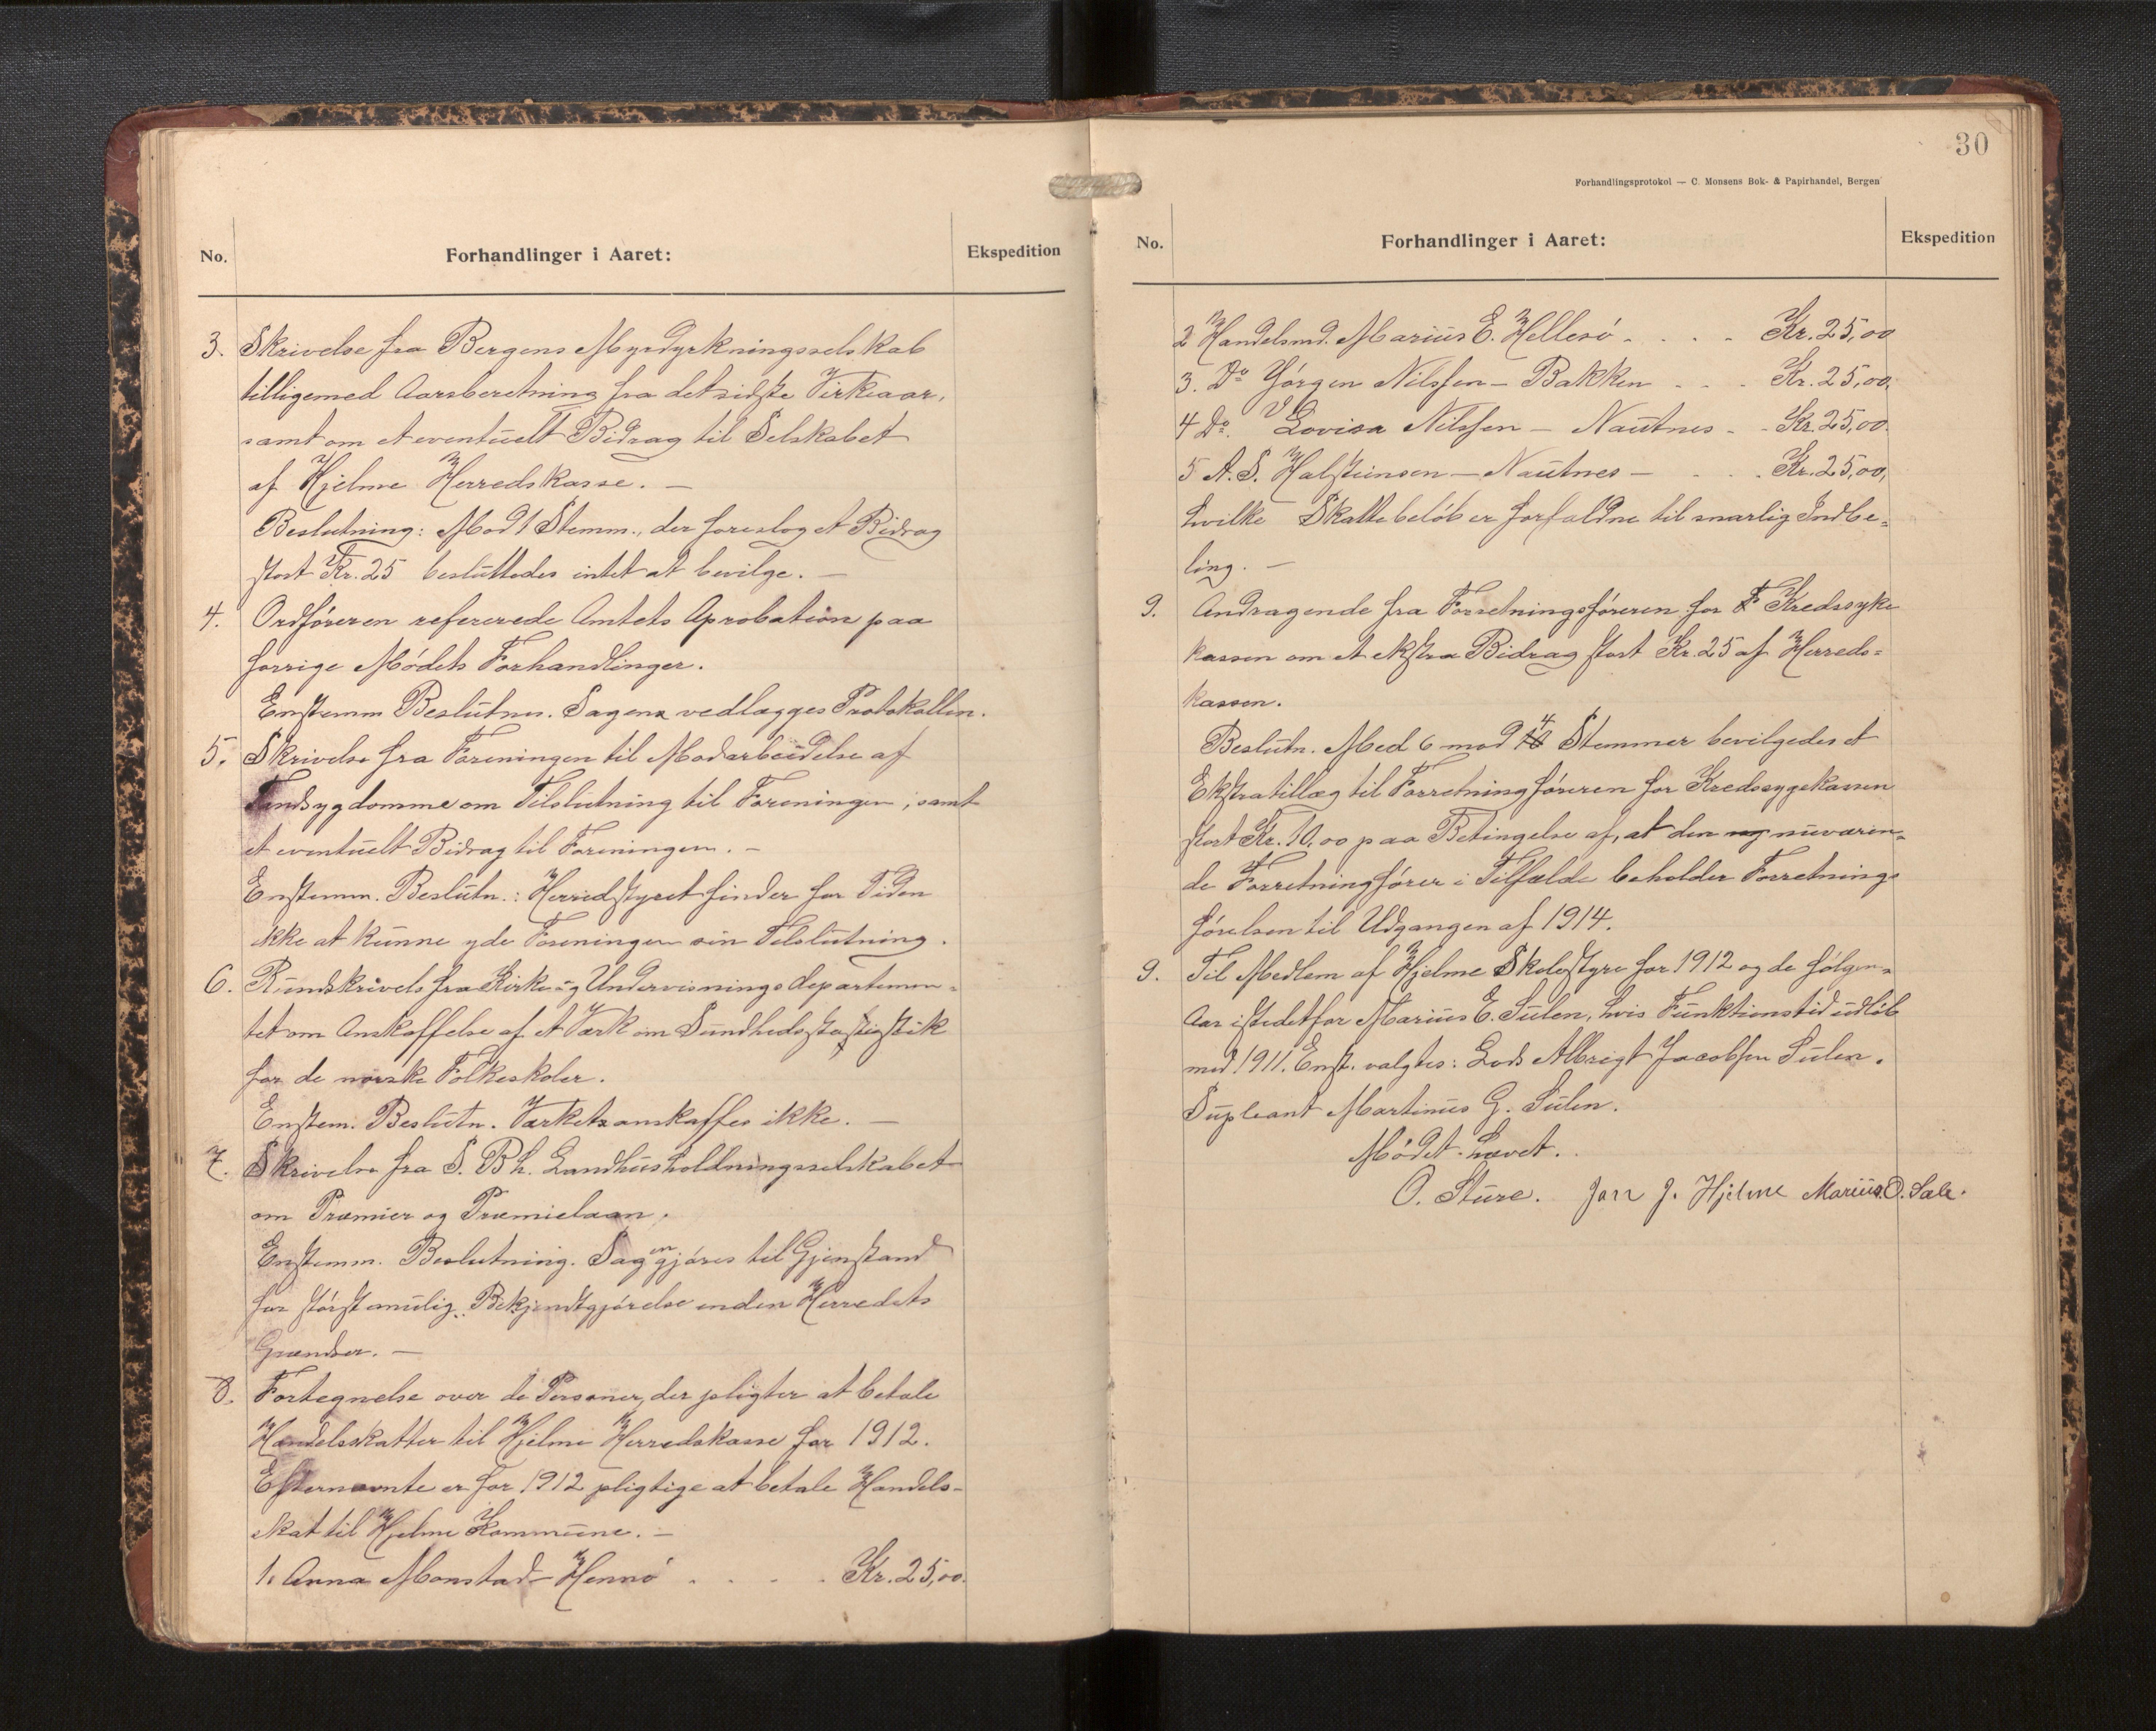 No.
Forhandlinger i Aaret:
Ekspedition
3. Skrivelse fra Bergens Myrdyrkningsselskab
tilligemed Aarsberetning fra det sidste Virkeaar,
samt om et eventuelt Bidrag til Selskabet
af Hjelme Herredskasse. —
Beslutning: Mod 1 Stemm., der foreslog et Bidrag
stort Kr. 25 besluttedes intet at bevilge. —
4. Ordføreren refererede Amtets Aprobation paa
forrige Mødets Forhandlinger.
Enstemm Beslutnn. Sagen vedlægges Protokollen.
5. Skrivelse fra Foreningen til Modarbeidelse af
Tandsygdomme om Tilslutning til Foreningen, samt
et eventuelt Bidrag til Foreningen. —
Enstemm. Beslutn.: Herredstyret finder for Tiden
ikke at kunne yde Foreningen sin Tilslutning.
6. Rundskrivels fra Kirke og Undervisningsdepartemen-
tet om Anskaffelse af et Værk om Sundhedsstatistik
for de norske Folkeskoler.
Enstem. Beslutn. Værket anskaffes ikke. —
7. Skrivelse fra S. Bh. Landhusholdningsselskabet
om Præmier og Præmielaan.
Enstemm. Beslutning. Sagen gjøres til Gjenstand
for størst mulig Bekjendtgjørelse inden Herredets
Grændser. —
8. Fortegnelse over de Personer, der pligter at betale
Handelsskatter til Hjelme Herredskasse for 1912.
Efternævnte er for 1912 pligtige at betale Handels-
skat til Hjelme Kommune. —
1. Anna Monstad - Hernø . . . . Kr. 25,00.
30
Forhandlingsprotokol — C. Monsens Bok- & Papirhandel, Bergen
No.
Forhandlinger i Aaret:
Ekspedition
2 Handelsmd. Marius E. Hellesø . . . . Kr. 25,00
3. Do Jørgen Nilssen - Bakken . . . Kr. 25,00,
4 Do. Lovisa Nilssen — Nautnes - . Kr. 25,00.
5 A. S. Halsteinsen - Nautnes — . . . Kr. 25,00,
hvilke Skattebeløb er forfaldne til snarlig Indbe-
ling. —
9. Andragende fra Forretningsføreren for Kredssyke
kassen om et ekstra Bidrag stort Kr. 25 af Herreds=
kassen.
Beslutn. Med 6 mod 4 Stemmer bevilgedes et
Ekstratillæg til Forretningføreren for Kredssygekassen
stort Kr. 10,00 paa Betingelse af, at den nuværen-
de Forretningfører i Tilfælde beholder Forretnings
førelsen til Udgangen af 1914.
9. Til Medlem af Hjelme Skolestyre for 1912 og de følgen-
Aar istedetfor Marius E. Sulen, hvis Funktionstid udløb
med 1911. Enst. valgtes: Lods Albrigt Jacobsen Sulen.
Supleant Martinus G. Sulen.
Mødet hævet.
O. Sture. Jan J. Hjelme Marius O. Sæle.